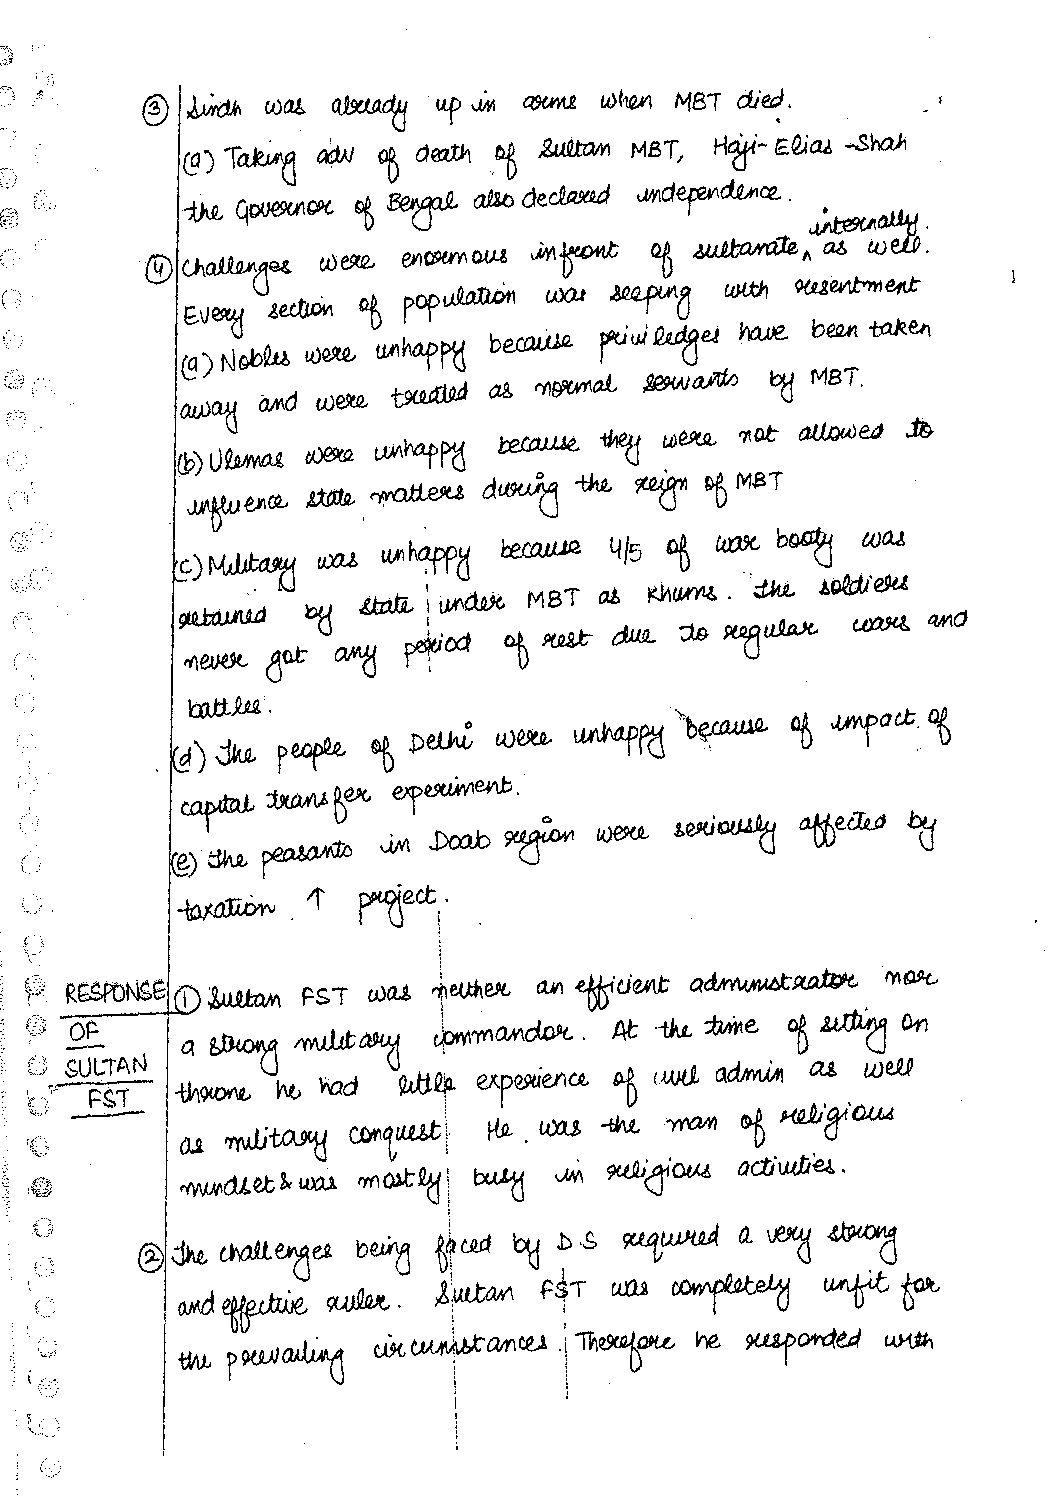 ③ Sindh was already up in arms when MBT died.
(a) Taking adv of death of Sultan MBT, Haji-Elias-Shah
the Governor of Bengal also declared independence.
internally.
④ Challenges were enormous infront of sultanate ^ as well.
Every section of population was seeping with resentment
(a) Nobles were unhappy because priviledges have been taken
away and were treated as normal servants by MBT.
(b) Ulemas were unhappy because they were not allowed to
influence state matters during the reign of MBT
(c) Military was unhappy because 4/5 of war booty was
retained by state under MBT as Khums. The soldiers
never got any period of rest due to regular wars and
battles.
(d) The people of Delhi were unhappy because of impact of
capital transfer experiment.
(e) The peasants in Doab region were seriously affected by
taxation ↑ project.
RESPONSE
OF
SULTAN
FST
① Sultan FST was neither an efficient administrator nor
a strong military commandor. At the time of sitting on
throne he had little experience of civil admin as well
as military conquest. He was the man of religious
mindset & was mostly busy in religious activities.
② The challenges being faced by DS required a very strong
and effective ruler. Sultan FST was completely unfit for
the prevailing circumstances. Therefore he responded with